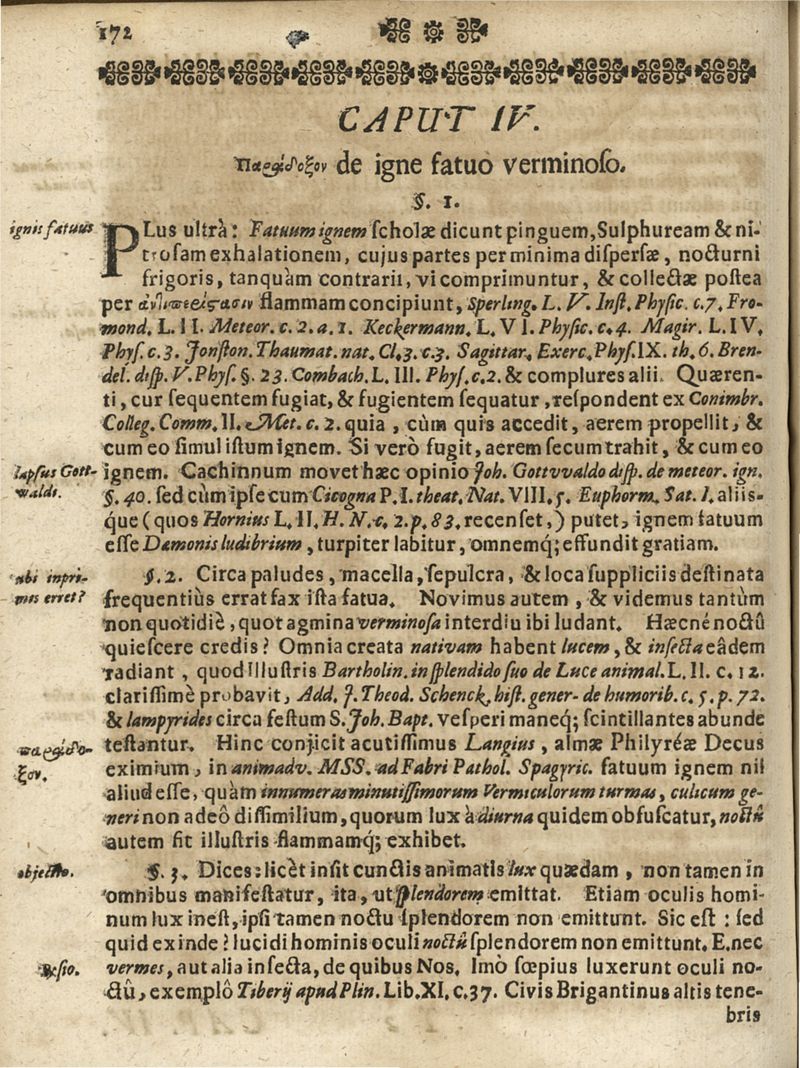 172
CAPUT IV.
Παράδοξον de igne fatuo verminoſo.
§. 1.
ignis fatuus
PLus ultrà: Fatuum ignem ſcholæ dicunt pinguem, Sulphuream & ni-
troſam exhalationem, cujus partes per minima diſperſæ, nocturni
frigoris, tanquàm contrarii, vi comprimuntur, & collectæ poſtea
per ἀντιπερίςασιν flammam concipiunt, Sperling. L. V. Inſt. Phyſic. c. 7. Fro-
mond. L. II. Meteor. c. 2. a. 1. Keckermann. L. VI. Phyſic. c. 4. Magir. L. IV.
Phyſ. c. 3. Jonſton. Thaumat. nat. Cl. 3. c. 3. Sagittar. Exerc. Phyſ. IX. th. 6. Bren-
del. diſp. V. Phyſ. §. 23. Combach. L. III. Phyſ. c. 2. & complures alii. Quæren-
ti, cur ſequentem fugiat, & fugientem ſequatur, reſpondent ex Conimbr.
Colleg. Comm. II. Met. c. 2. quia, cùm quis accedit, aerem propellit, &
cum eo ſimul iſtum ignem. Si verò fugit, aerem ſecum trahit, & cum eo
lapſus Gott-
waldi.
ignem. Cachinnum movet hæc opinio Joh. Gottvvaldo diſp. de meteor. ign.
§. 40. ſed cùm ipſe cum Cicogna P. I. theat. Nat. VIII. 5. Euphorm. Sat. I. aliis-
que (quos Hornius L. II. H. N. c. 2. p. 83. recenſet,) putet, ignem fatuum
eſſe Dæmonis ludibrium, turpiter labitur, omnemq; effundit gratiam.
ubi inpri-
mis erret?
§. 2. Circa paludes, macella, ſepulcra, & loca ſuppliciis deſtinata
frequentiùs errat fax iſta fatua. Novimus autem, & videmus tantùm
non quotidiè, quot agmina verminoſa interdiu ibi ludant. Hæcné noctû
quieſcere credis? Omnia creata nativam habent lucem, & inſecta eâdem
radiant, quod Illuſtris Bartholin. in ſplendido ſuo de Luce animal. L. II. c. 12.
clariſſimè probavit, Add. J. Theod. Schenck. hiſt. gener. de humorib. c. 5. p. 72.
& lampyrides circa feſtum S. Joh. Bapt. veſperi maneq; ſcintillantes abunde
παράδο-
ξον.
teſtantur. Hinc conjicit acutiſſimus Langius, almæ Philyréæ Decus
eximium, in animadv. MSS. ad Fabri Pathol. Spagyric. fatuum ignem nil
aliud eſſe, quàm innumeras minutiſſimorum Vermiculorum turmas, culicum ge-
neri non adeô diſſimilium, quorum lux à diurna quidem obfuſcatur, noctû
autem fit illuſtris flammamq; exhibet.
objectio.
§. 3. Dices: licèt inſit cunctis animatis lux quædam, non tamen in
omnibus manifeſtatur, ita, ut ſplendorem emittat. Etiam oculis homi-
num lux ineſt, ipſi tamen noctu ſplendorem non emittunt. Sic eſt: ſed
quid ex inde? lucidi hominis oculi noctû ſplendorem non emittunt. E. nec
vermes, aut alia inſecta, de quibus Nos. Imò ſœpius luxerunt oculi no-
ctû, exemplô Tiberij apud Plin. Lib. XI. c. 37. Civis Brigantinus altis tene-
bris